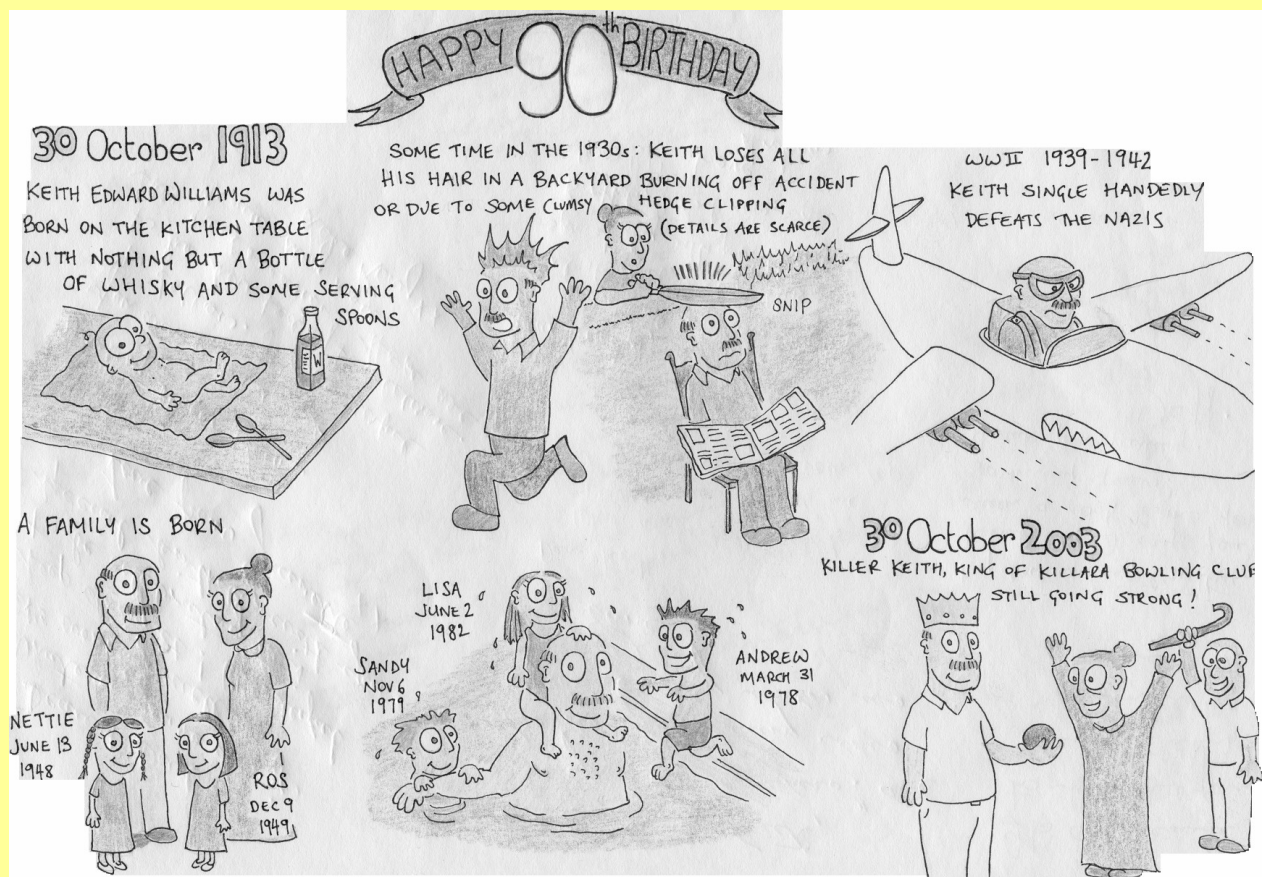 HAPPY 90th BIRTHDAY
30 October 1913
KEITH EDWARD WILLIAMS WAS
BORN ON THE KITCHEN TABLE
WITH NOTHING BUT A BOTTLE
OF WHISKY AND SOME SERVING
SPOONS
W
SOME TIME IN THE 1930s: KEITH LOSES ALL
HIS HAIR IN A BACKYARD BURNING OFF ACCIDENT
OR DUE TO SOME CLUMSY HEDGE CLIPPING
(DETAILS ARE SCARCE)
SNIP
WW II 1939-1942
KEITH SINGLE HANDEDLY
DEFEATS THE NAZIS
A FAMILY IS BORN
NETTIE
JUNE 13
1948
ROS
DEC 9
1949
SANDY
NOV 6
1979
LISA
JUNE 2
1982
ANDREW
MARCH 31
1978
30 October 2003
KILLER KEITH, KING OF KILLARA BOWLING CLUB
STILL GOING STRONG!